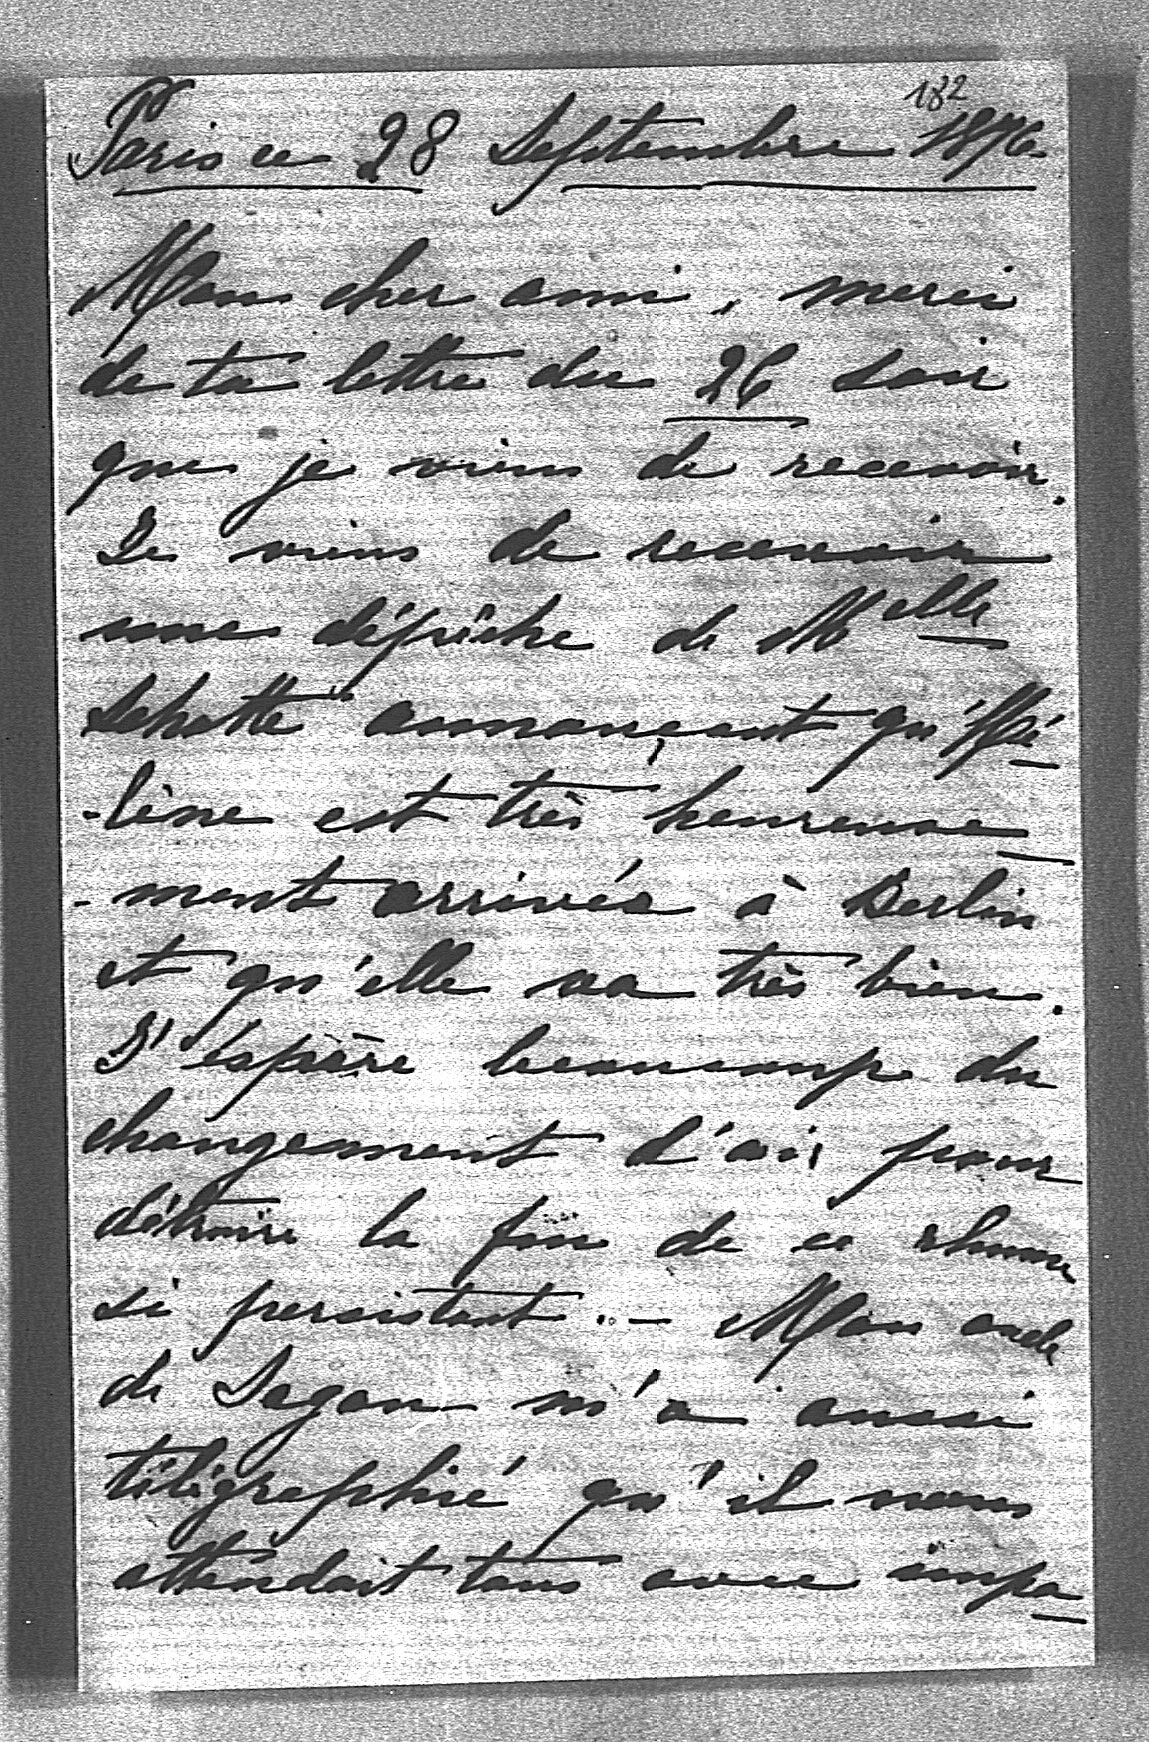 182
Paris ce 28 Septembre 1876
Mon cher ami, merci
de ta lettre du 26 soir
que je viens de recevoir.
Je viens de recevoir
une dépêche de Melle
Schotte annonçant qu'Hé-
-lène est très heureuse-
-ment arrivée à Berlin
et qu'elle va très bien.
J'éspère beaucoup du
changement d'air pour
détruire la fin de ce rhume
si persistant. – Mon oncle
de Sagan m'a aussi
télégraphié qu'il nous
attendait tous avec impa-